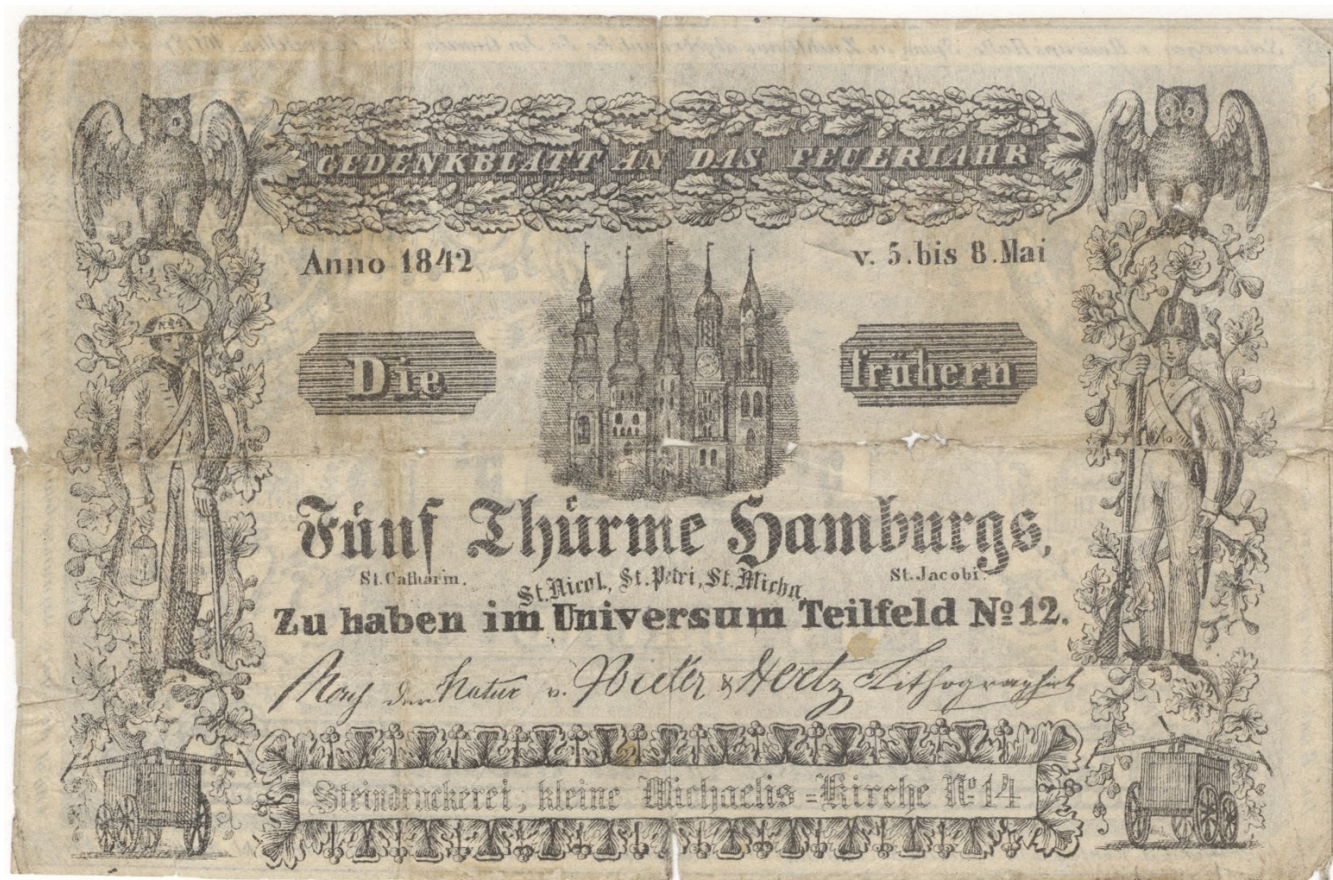 GEDENKBLATT AN DAS FEUERIAHR
Anno 1842 v. 5. bis 8. Mai
Die frühern
Fünf Thürme Hamburgs,
St. Catharin. St. Nicol, St. Petri, St. Micha St. Jacobi.
Zu haben im Universum Teilfeld No 12.
Nach der Natur v. & Hertz Lithographirt
Steindruckerei, kleine Michaelis=Kirche No 14